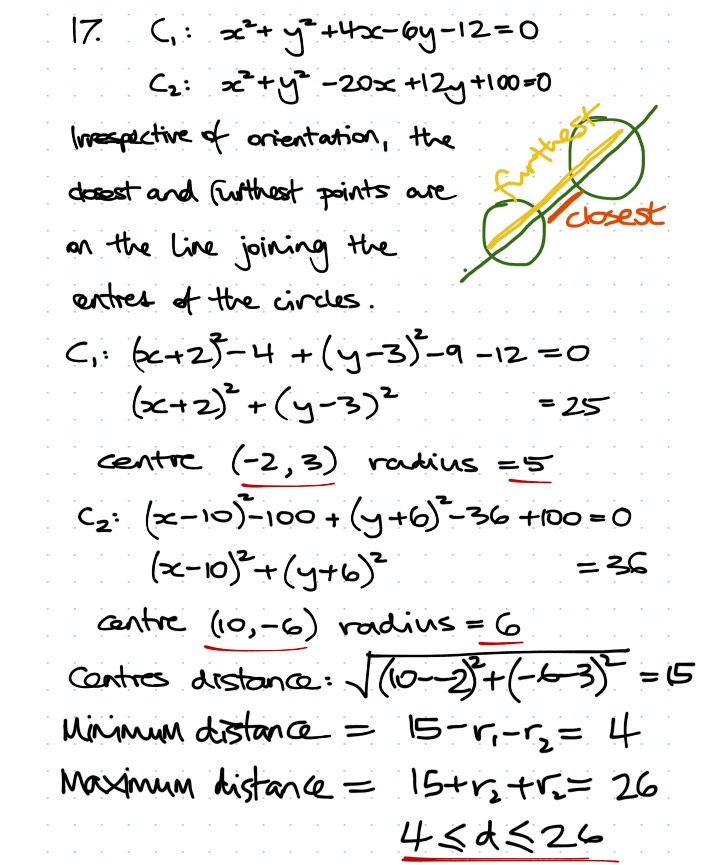 17. C₁: x²+y²+4x-6y-12=0
C₂: x²+y²-20x+12y+100=0
Irrespective of orientation, the
closest and furthest points are
on the line joining the
centres of the circles.
furthest
closest
C₁: (x+2)²-4+(y-3)²-9-12=0
(x+2)²+(y-3)² =25
centre (-2,3) radius =5
C₂: (x-10)²-100+(y+6)²-36+100=0
(x-10)²+(y+6)² =36
centre (10,-6) radius=6
Centres distance: √((10--2)²+(-6-3)²) =15
Minimum distance = 15-r₁-r₂= 4
Maximum distance = 15+r₂+r₂= 26
4≤d≤26